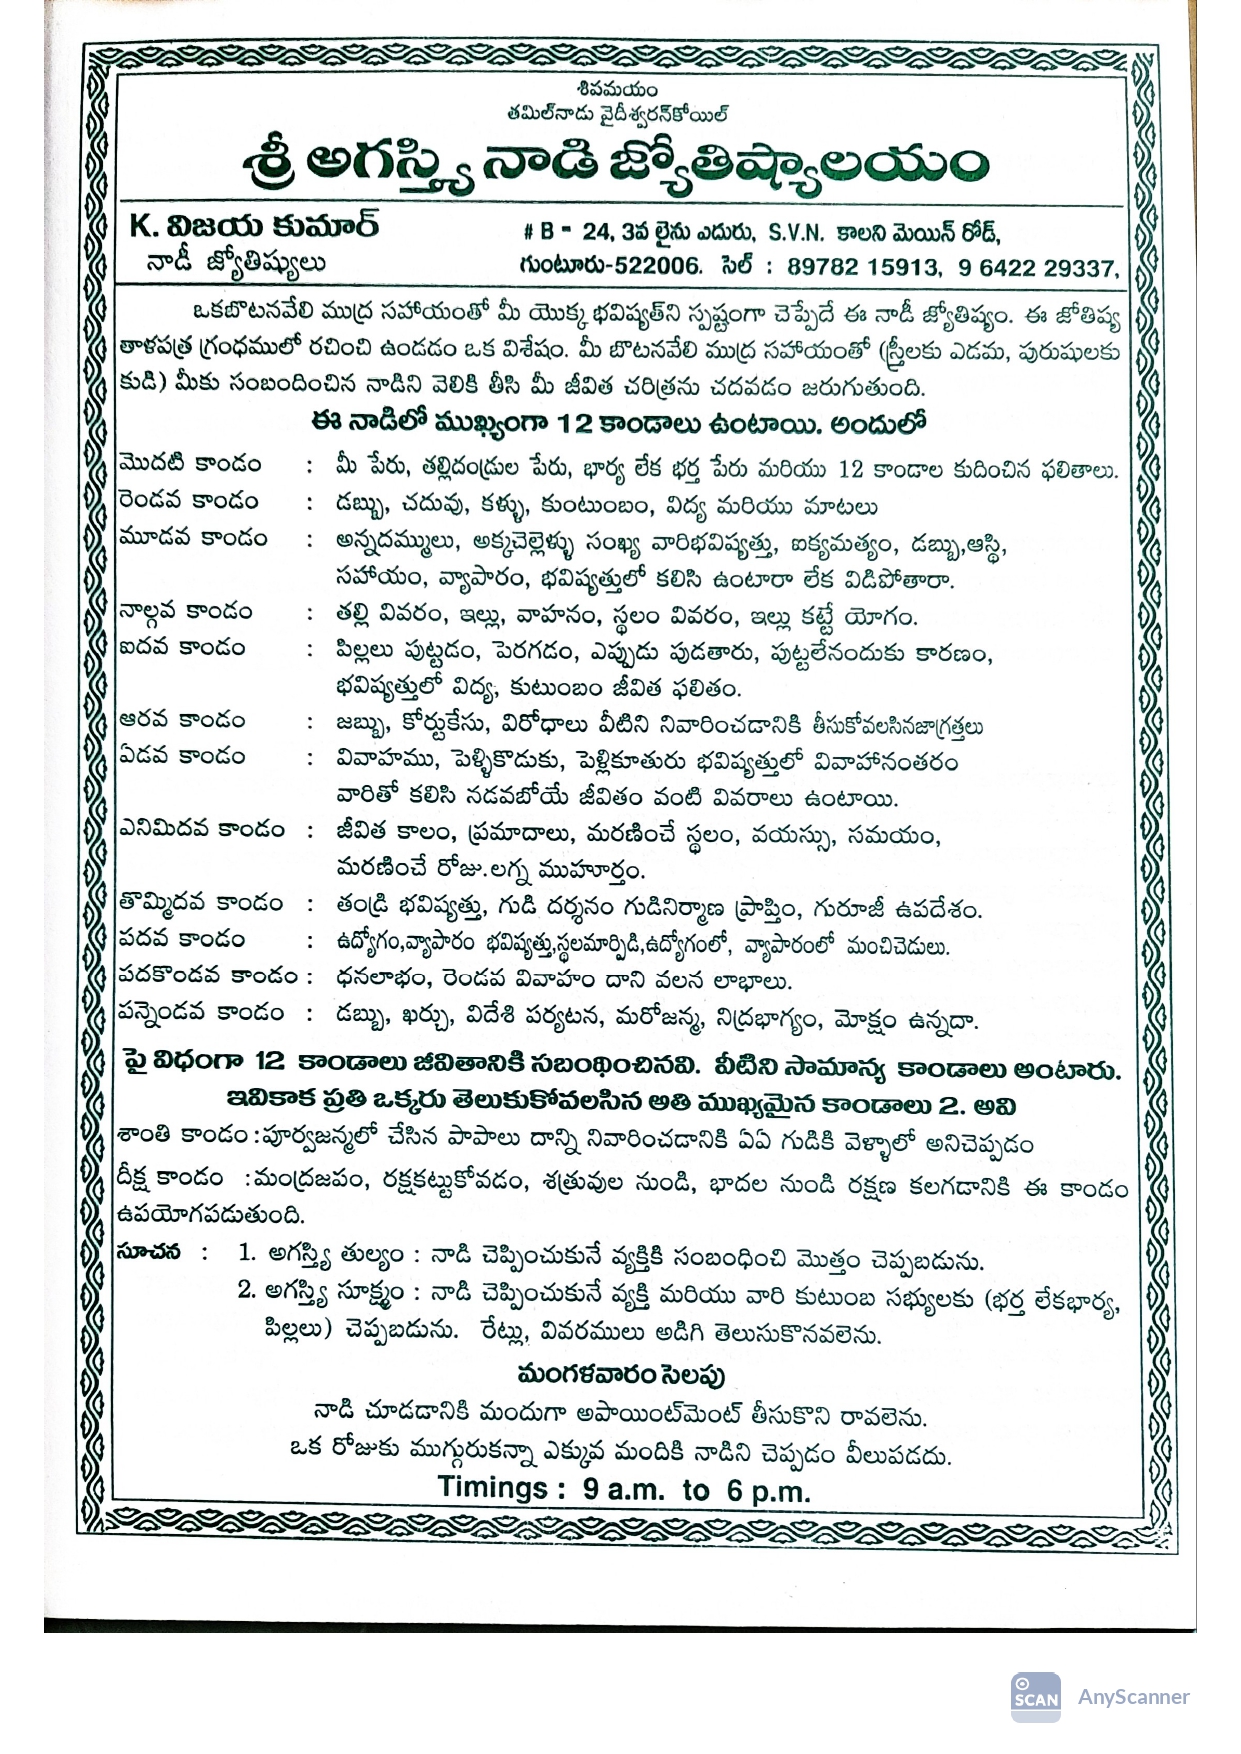 శివమయం
తమిల్‌నాడు వైదీశ్వరన్‌కోయిల్
శ్రీ అగస్త్య నాడి జ్యోతిష్యాలయం
K. విజయ కుమార్
# B - 24, 3వ లైను ఎదురు, S.V.N. కాలని మెయిన్ రోడ్,
నాడీ జ్యోతిష్యులు
గుంటూరు-522006. సెల్ : 89782 15913, 9 6422 29337,
ఒకబొటనవేలి ముద్ర సహాయంతో మీ యొక్క భవిష్యత్‌ని స్పష్టంగా చెప్పేదే ఈ నాడీ జ్యోతిష్యం. ఈ జోతిష్య
తాళపత్ర గ్రంధములో రచించి ఉండడం ఒక విశేషం. మీ బొటనవేలి ముద్ర సహాయంతో (స్త్రీలకు ఎడమ, పురుషులకు
కుడి) మీకు సంబందించిన నాడిని వెలికి తీసి మీ జీవిత చరిత్రను చదవడం జరుగుతుంది.
ఈ నాడిలో ముఖ్యంగా 12 కాండాలు ఉంటాయి. అందులో
మొదటి కాండం : మీ పేరు, తల్లిదండ్రుల పేరు, భార్య లేక భర్త పేరు మరియు 12 కాండాల కుదించిన ఫలితాలు.
రెండవ కాండం : డబ్బు, చదువు, కళ్ళు, కుంటుంబం, విద్య మరియు మాటలు
మూడవ కాండం : అన్నదమ్ములు, అక్కచెల్లెళ్ళు సంఖ్య వారిభవిష్యత్తు, ఐక్యమత్యం, డబ్బు,ఆస్థి,
సహాయం, వ్యాపారం, భవిష్యత్తులో కలిసి ఉంటారా లేక విడిపోతారా.
నాల్గవ కాండం : తల్లి వివరం, ఇల్లు, వాహనం, స్థలం వివరం, ఇల్లు కట్టే యోగం.
ఐదవ కాండం : పిల్లలు పుట్టడం, పెరగడం, ఎప్పుడు పుడతారు, పుట్టలేనందుకు కారణం,
భవిష్యత్తులో విద్య, కుటుంబం జీవిత ఫలితం.
ఆరవ కాండం : జబ్బు, కోర్టుకేసు, విరోధాలు వీటిని నివారించడానికి తీసుకోవలసినజాగ్రత్తలు
ఏడవ కాండం : వివాహము, పెళ్ళికొడుకు, పెళ్లికూతురు భవిష్యత్తులో వివాహానంతరం
వారితో కలిసి నడవబోయే జీవితం వంటి వివరాలు ఉంటాయి.
ఎనిమిదవ కాండం : జీవిత కాలం, ప్రమాదాలు, మరణించే స్థలం, వయస్సు, సమయం,
మరణించే రోజు.లగ్న ముహూర్తం.
తొమ్మిదవ కాండం : తండ్రి భవిష్యత్తు, గుడి దర్శనం గుడినిర్మాణ ప్రాప్తిం, గురూజీ ఉపదేశం.
పదవ కాండం : ఉద్యోగం,వ్యాపారం భవిష్యత్తు,స్థలమార్పిడి,ఉద్యోగంలో, వ్యాపారంలో మంచిచెడులు.
పదకొండవ కాండం : ధనలాభం, రెండవ వివాహం దాని వలన లాభాలు.
పన్నెండవ కాండం : డబ్బు, ఖర్చు, విదేశి పర్యటన, మరోజన్మ, నిద్రభాగ్యం, మోక్షం ఉన్నదా.
పై విధంగా 12 కాండాలు జీవితానికి సబంథించినవి. వీటిని సామాన్య కాండాలు అంటారు.
ఇవికాక ప్రతి ఒక్కరు తెలుకుకోవలసిన అతి ముఖ్యమైన కాండాలు 2. అవి
శాంతి కాండం :పూర్వజన్మలో చేసిన పాపాలు దాన్ని నివారించడానికి ఏఏ గుడికి వెళ్ళాలో అనిచెప్పడం
దీక్ష కాండం :మంద్రజపం, రక్షకట్టుకోవడం, శత్రువుల నుండి, భాదల నుండి రక్షణ కలగడానికి ఈ కాండం
ఉపయోగపడుతుంది.
సూచన : 1. అగస్త్య తుల్యం : నాడి చెప్పించుకునే వ్యక్తికి సంబంధించి మొత్తం చెప్పబడును.
2. అగస్త్య సూక్ష్మం : నాడి చెప్పించుకునే వ్యక్తి మరియు వారి కుటుంబ సభ్యులకు (భర్త లేకభార్య,
పిల్లలు) చెప్పబడును. రేట్లు, వివరములు అడిగి తెలుసుకొనవలెను.
మంగళవారం సెలపు
నాడి చూడడానికి మందుగా అపాయింట్‌మెంట్ తీసుకొని రావలెను.
ఒక రోజుకు ముగ్గురుకన్నా ఎక్కువ మందికి నాడిని చెప్పడం వీలుపడదు.
Timings : 9 a.m. to 6 p.m.
SCAN AnyScanner